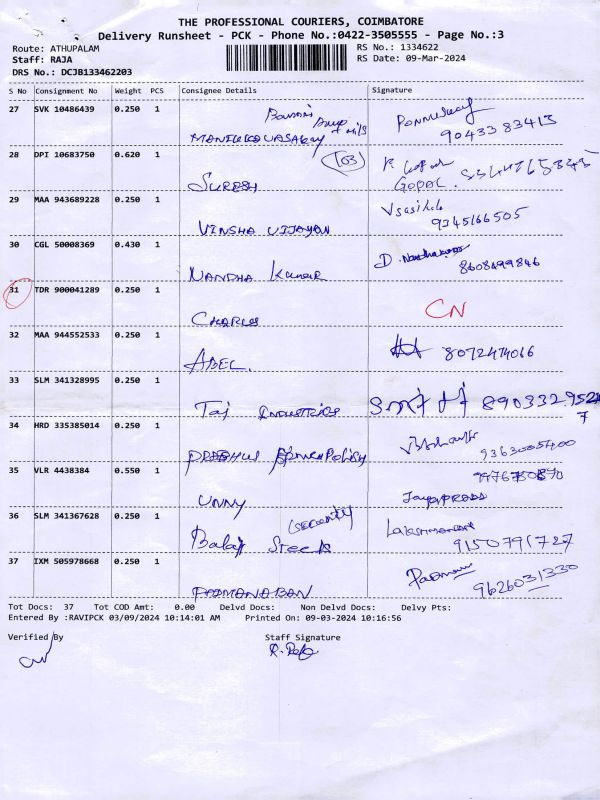 THE PROFESSIONAL COURIERS, COIMBATORE
Delivery Runsheet - PCK - Phone No.:0422-3505555 - Page No.:3
Route: ATHUPALAM
RS No.: 1334622
Staff: RAJA
RS Date: 09-Mar-2024
DRS No.: DCJB133462203
S No Consignment No Weight PCS Consignee Details Signature
27 SVK 10486439 0.250 1
9043383413
28 DPI 10683750 0.620 1 SURESH
GOPAL.
29 MAA 943689228 0.250 1 VINSHA VIJAYAN
9345166505
30 CGL 50008369 0.430 1 NANDHA Kumar
8608699846
31 TDR 900041289 0.250 1 CHARLES CN
32 MAA 944552533 0.250 1 ABEL. 8072474066
33 SLM 341328995 0.250 1 Taj INDUSTRIES
34 HRD 335385014 0.250 1
9363005400
35 VLR 4438384 0.550 1 UNNY
36 SLM 341367628 0.250 1 Balaji Steels (security
9150791727
37 IXM 505978668 0.250 1 PADMANABAN
9626031330
Tot Docs: 37 Tot COD Amt: 0.00 Delvd Docs: Non Delvd Docs: Delvy Pts:
Entered By :RAVIPCK 03/09/2024 10:14:01 AM Printed On: 09-03-2024 10:16:56
Verified By Staff Signature